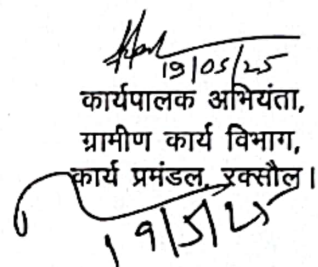 19/05/25
कार्यपालक अभियंता,
ग्रामीण कार्य विभाग,
कार्य प्रमंडल, रक्सौल।
19/5/25